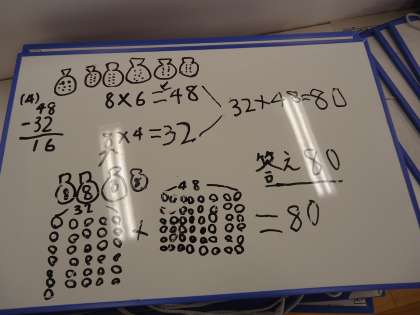 (4)
48
-32
16
8×6=48
8×4=32
32+48=80
答え 80
8 8 8 8
32
+
48
=80